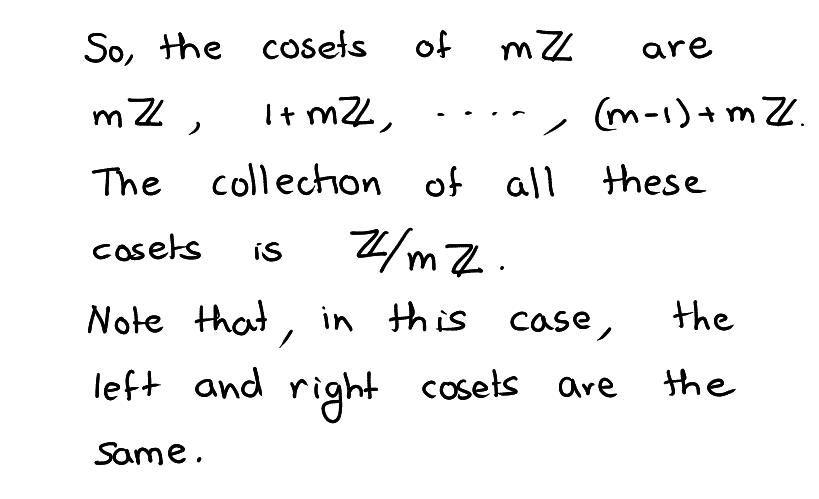 So, the cosets of mℤ are
mℤ, 1+mℤ, ....., (m-1)+mℤ.
The collection of all these
cosets is ℤ/mℤ.
Note that, in this case, the
left and right cosets are the
same.